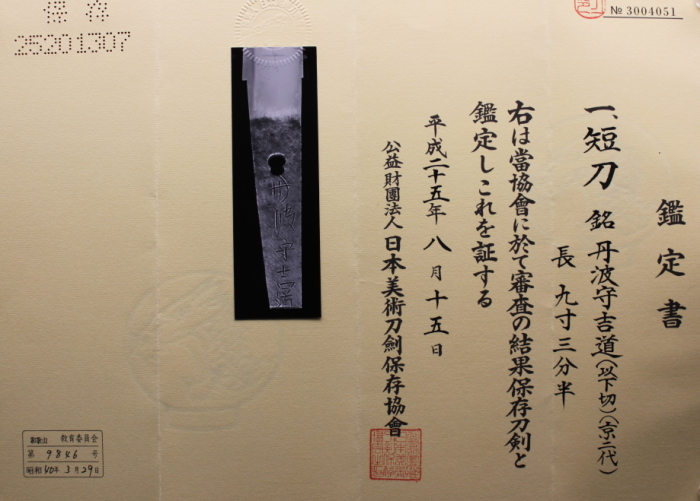 № 3004051
鑑定書
一、短刀 銘 丹波守吉道(以下切)(京二代)
長 九寸三分半
右は當協會に於て審査の結果保存刀剣と
鑑定しこれを証する
平成二十五年八月十五日
公益財團法人 日本美術刀劍保存協會
丹波守吉道
保存
25201307
和歌山 教育委員会
第 9846 号
昭和 40年 3月 29日